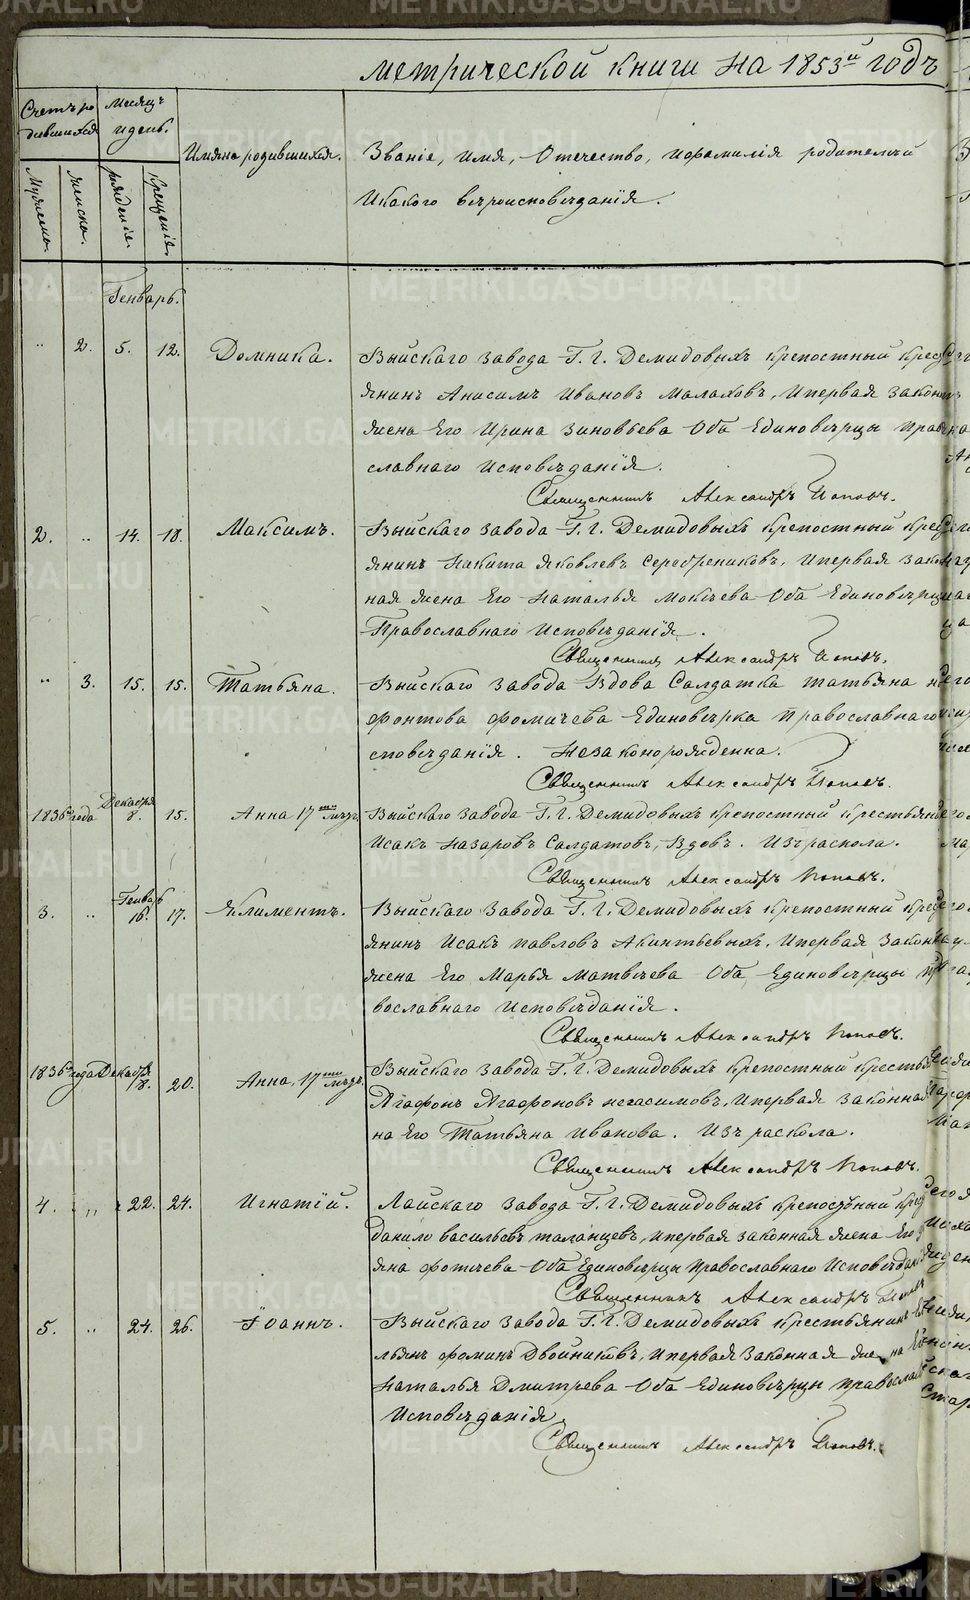 метрической книги на 1853й годъ
Счетъ родившихся
Мужеска.
женска.
Месяцъ и день.
рожденіе.
крещеніе.
Имяна родившихся.
Званіе, имя, отечество, ифамилія родителей
Икакого вѣроисповѣданія.
Генварь.
" 2. 5. 12. Домника.
Выйскаго завода Г. Г. Демидовыхъ крепостный крест
янинъ Анисимъ Ивановъ Малаховъ, Ипервая закон
жена Его Ирина Зиновьева Оба Единоверцы Право
славнаго исповѣданія.
Священникъ Александръ Поповъ.
2. " 14. 18. Максимъ.
Выйскаго завода Г. Г. Демидовыхъ крепостный крест
янинъ Никита Яковлевъ Серебрениковъ, Ипервая закон
ная жена Его Наталья Мокѣева Оба Единовѣрцы
Православнаго Исповѣданія.
Священникъ Александръ Поповъ.
" 3. 15. 15. Татьяна.
Выйскаго завода Вдова Солдатка Татьяна
фонтова фомичева Единовѣрка Православнаго
споведанія. Незаконорожденна.
Священникъ Александръ Поповъ.
1836 года Декабря 8. 15. Анна 17ти лѣтъ.
Выйскаго завода Г. Г. Демидовыхъ крепостный крестьянинъ
Исакъ Назаровъ Солдатовъ, Вдовъ. Изъ раскола.
Священникъ Александръ Поповъ.
3. " Генварь 16. 17. Климентъ.
Выйскаго Завода Г. Г. Демидовыхъ крепостный крест
янинъ Исакъ Павловъ Акинтьевыхъ, Ипервая Законная
жена Его Марья Матвѣева Оба Единовѣрцы Пра
вославнаго Исповѣданія.
Священникъ Александръ Поповъ.
1836 года Декабря 8. 20. Анна, 17ти лѣтъ.
Выйскаго Завода Г. Г. Демидовыхъ Крепостный крестья
Агафонъ Агафоновъ Негасимовъ, Ипервая законная
на Его Татьяна Иванова. Изъ раскола.
Священникъ Александръ Поповъ.
4. " 22. 24. Игнатій.
Лайскаго завода Г. Г. Демидовыхъ крепостный крес
данило васильевъ таланцевъ, Ипервая законная жена Его
яна фотиева Оба Единоверцы Православнаго Исповѣдан
Священникъ Александръ Поповъ
5. " 24. 26. Іоаннъ.
Выйскаго завода Г. Г. Демидовыхъ крестьянинъ
льянъ фоминъ Двойниковъ, Ипервая Законная жена
Наталья Дмитрева Оба Единовѣрцы православ
Исповѣданія.
Священникъ Александръ Поповъ.
METRIKI.GASO-URAL.RU